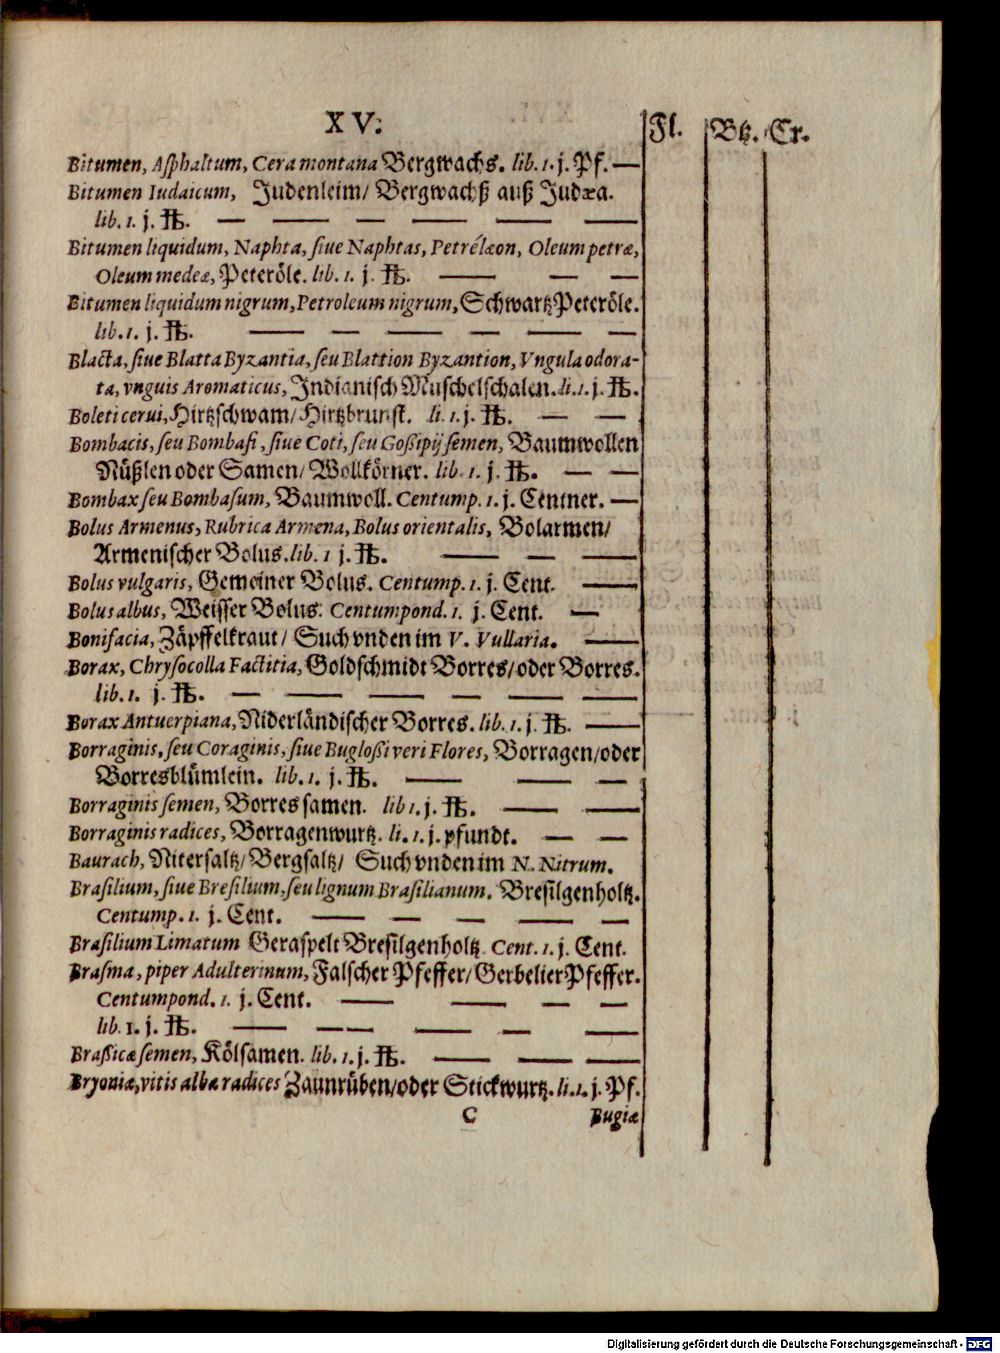 XV.
Fl. Btz. Cr.
Bitumen, Asphaltum, Cera montana Bergwachs. lib. 1. j. Pf. —
Bitumen Iudaicum, Judenleim/ Bergwachß auß Judæa.
lib. 1. j. ℔. — — — — — —
Bitumen liquidum, Naphta, siue Naphtas, Petrélæon, Oleum petræ,
Oleum medeæ, Peteröle. lib. 1. j. ℔. — — —
Bitumen liquidum nigrum, Petroleum nigrum, Schwartz Peteröle.
lib. 1. j. ℔. — — — — — —
Blacta, siue Blatta Byzantia, seu Blattion Byzantion, Vngula odora-
ta, vnguis Aromaticus, Indianisch Muschelschalen. li. 1. j. ℔.
Boleti cerui, Hirtzschwam/ Hirtzbrunst. li. 1. j. ℔. — —
Bombacis, seu Bombasi, siue Coti, seu Goßipij semen, Baumwollen
Nüßlen oder Samen/ Wollkörner. lib. 1. j. ℔. — —
Bombax seu Bombasum, Baumwoll. Centump. 1. j. Centner. —
Bolus Armenus, Rubrica Armena, Bolus orientalis, Bolarmen/
Armenischer Bolus. lib. 1 j. ℔. — — —
Bolus vulgaris, Gemeiner Bolus. Centump. 1. j. Cent. —
Bolus albus, Weisser Bolus. Centumpond. 1. j. Cent. —
Bonifacia, Zäpffelkraut/ Such vnden im V. Vullaria. —
Borax, Chrysocolla Factitia, Goldschmidt Borres/ oder Borres.
lib. 1. j. ℔. — — — — — —
Borax Antuerpiana, Niderländischer Borres. lib. 1. j. ℔. —
Borraginis, seu Coraginis, siue Bugloßi veri Flores, Borragen/oder
Borresblümlein. lib. 1. j. ℔. — — —
Borraginis semen, Borres samen. lib 1. j. ℔. — —
Borraginis radices, Borragenwurtz. li. 1. j. pfundt. — —
Baurach, Nitersaltz/ Bergsaltz/ Such vnden im N. Nitrum.
Brasilium, siue Bresilium, seu lignum Brasilianum. Bresilgenholtz.
Centump. 1. j. Cent. — — — — —
Brasilium Limatum Geraspelt Bresilgenholtz. Cent. 1. j. Cent.
Brasma, piper Adulterinum, Falscher Pfeffer/ Gerbelier Pfeffer.
Centumpond. 1. j. Cent. — — — —
lib. 1. j. ℔. — — — — — —
Braßicæ semen, Kölsamen. lib. 1. j. ℔. — — —
Bryoniæ, vitis albæ radices Zaunrüben/oder Stickwurtz. li. 1. j. Pf.
C Bugiæ
Digitalisierung gefördert durch die Deutsche Forschungsgemeinschaft - DFG